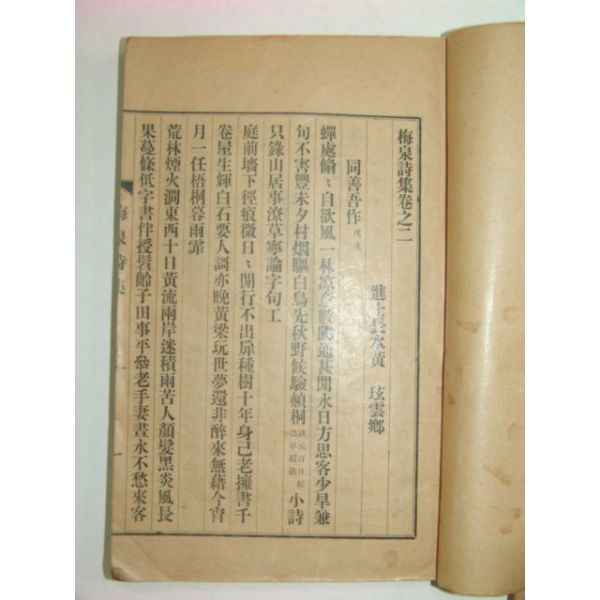 梅泉詩集卷之二
進士長水黃 玹雲鄉
同善吾作戊戌
蟬處脩〻自欲風一林凉 閒永日方思客少旱兼
句不害豐未夕村烟驅白鳥先秋野候驗楨桐 小詩
只錄山居事潦草寧論字句工
庭前墻下徑痕微日〻閒行不出扉種樹十年身已老擁書千
卷屋生輝白石要人謌亦晚黃粱玩世夢還非醉來無藉今宵
月一任梧桐暮雨霏
荒林煙火澗東西十日黃流兩岸迷積雨苦人顏髮黑炎風長
果蔓條低字書伴授髫齡子田事平參老手妻晝永不愁來客
梅泉詩集
一